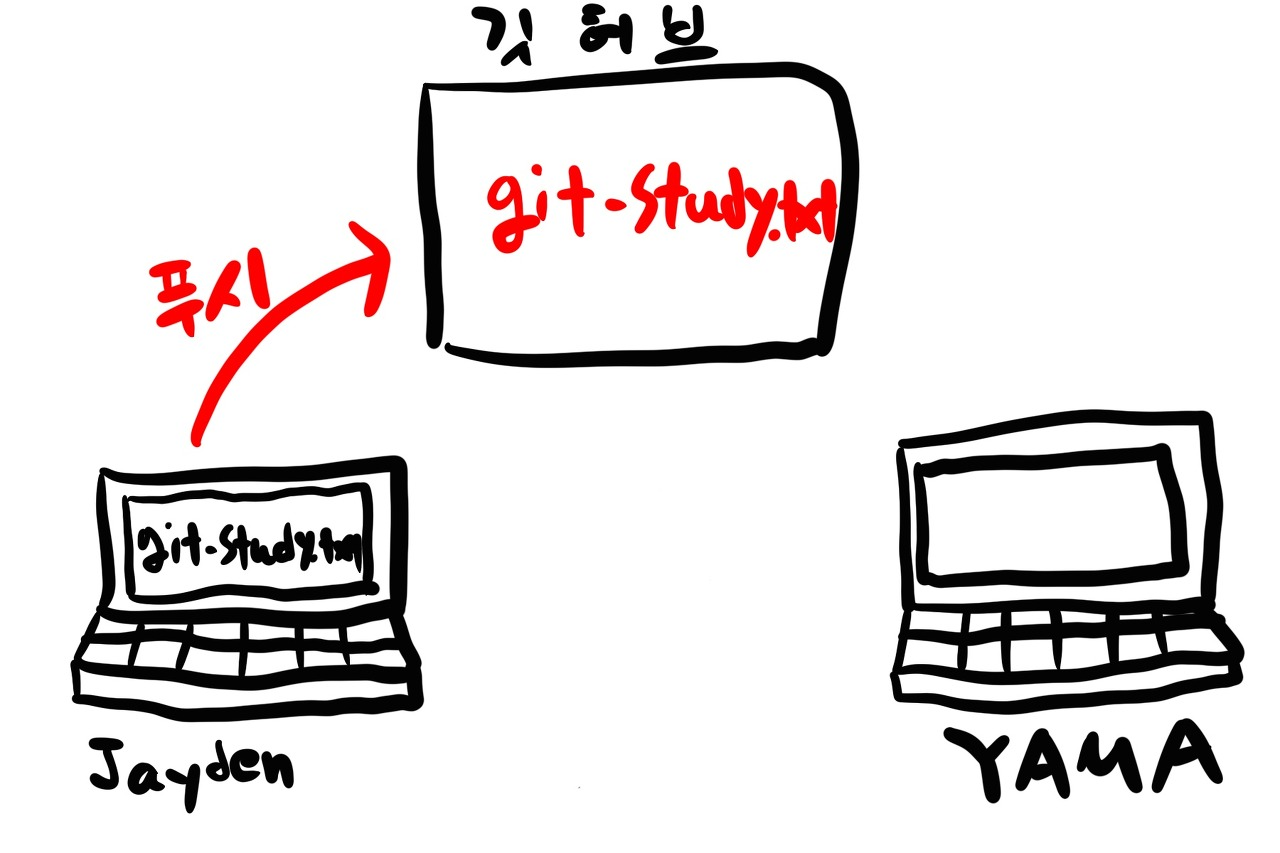 깃 허브
git-study.txt
푸시
git-study.txt
Jayden
YAMA